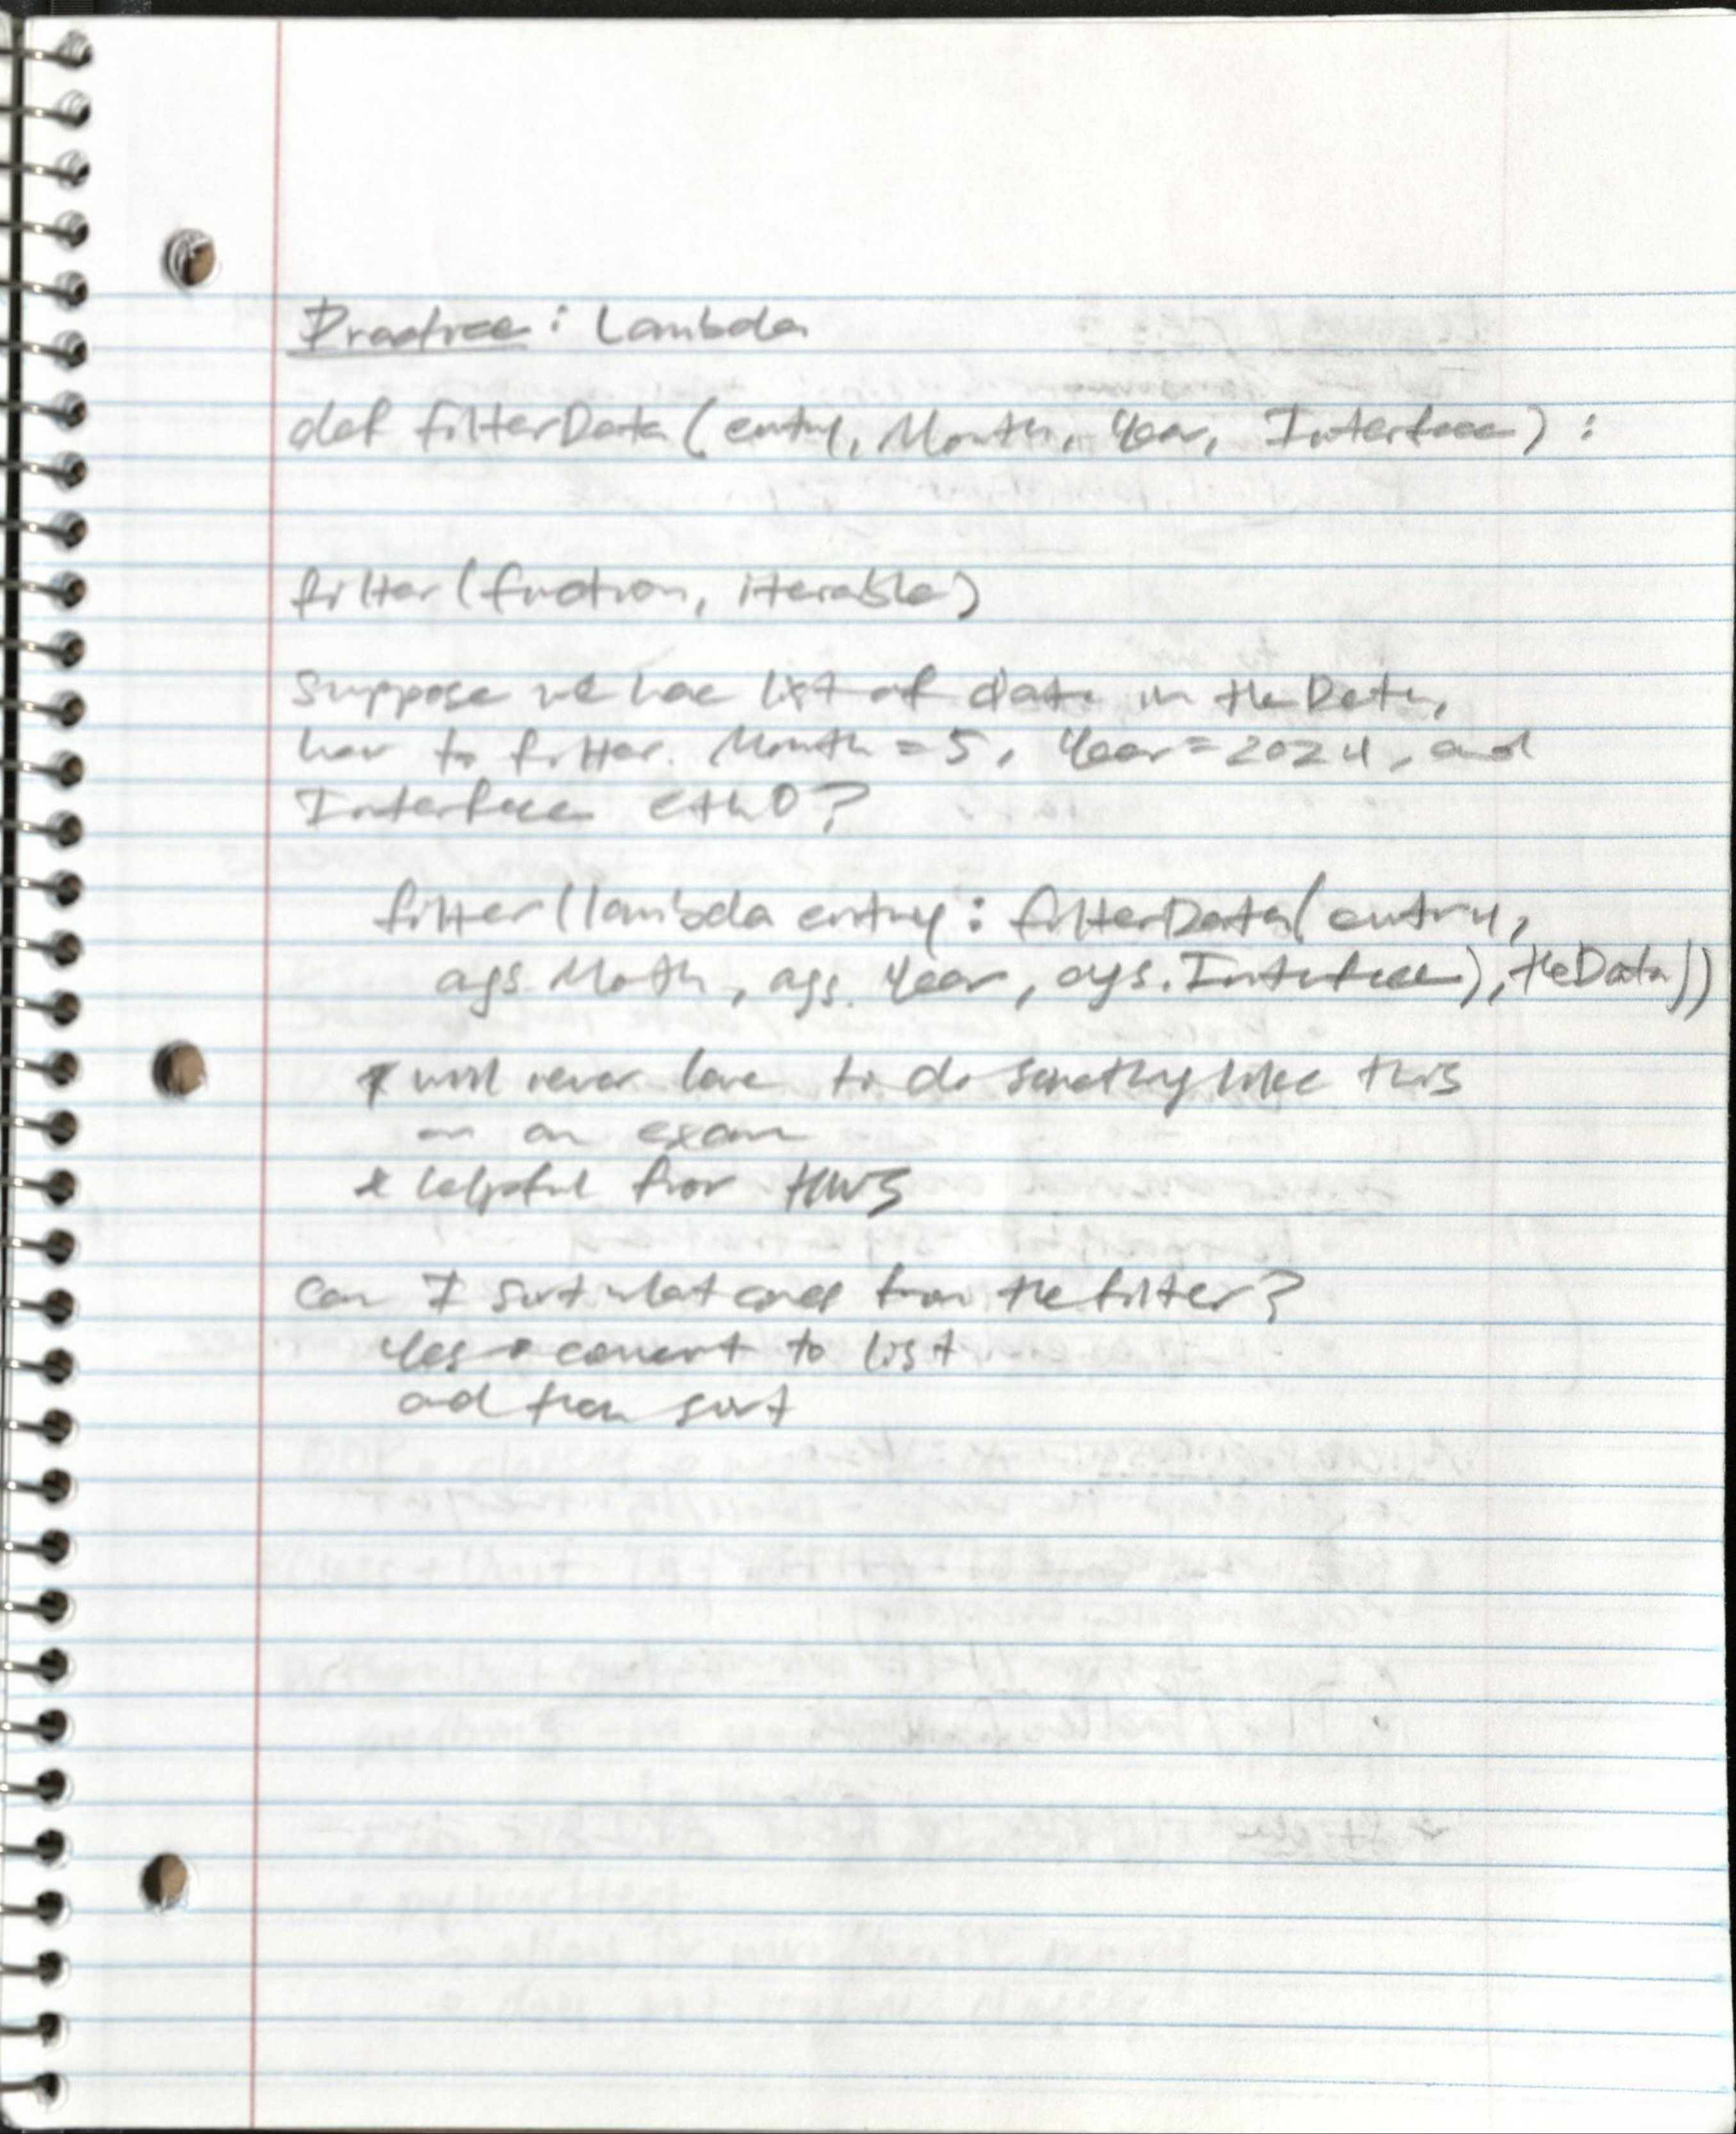 Practice: Lambda
def filterData(entry, Month, Year, Interface):
filter(function, iterable)
Suppose we have list of data in theData,
how to filter. Month = 5, Year = 2024, and
Interface eth0?
filter(lambda entry: filterData(entry,
ags.Month, ags.Year, ags.Interface), theData))
* will never have to do something like this
on an exam
* helpful for HW5
Can I sort what comes from the filter?
Yes → convert to list
and then sort